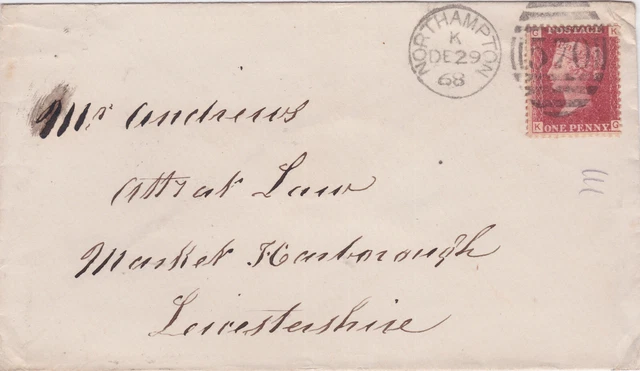 NORTHAMPTON
K
DE 29
68
570
G K
POSTAGE
K G
ONE PENNY
Mr Andrews
Att at Law
Market Harborough
Leicestershire